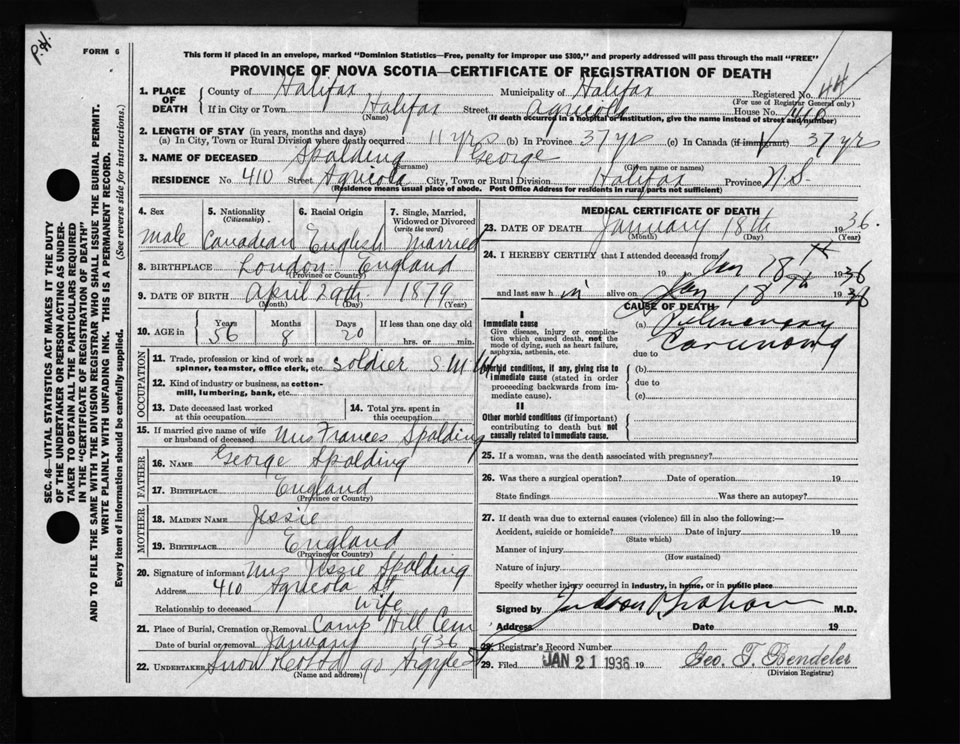 P.H.
FORM 6
This form if placed in an envelope, marked "Dominion Statistics—Free, penalty for improper use $300," and properly addressed will pass through the mail "FREE"
PROVINCE OF NOVA SCOTIA—CERTIFICATE OF REGISTRATION OF DEATH
1. PLACE OF DEATH County of Halifax Municipality of Halifax Registered No. 44
(For use of Registrar General only)
If in City or Town Halifax Street Agricola House No. 410
(Name) (If death occurred in a hospital or institution, give the name instead of street and number)
2. LENGTH OF STAY (in years, months and days)
(a) In City, Town or Rural Division where death occurred 11 yrs (b) In Province 37 yr (c) In Canada (if immigrant) 37 yrs
3. NAME OF DECEASED Spalding George
(Surname) (Given name or names)
RESIDENCE No. 410 Street Agricola City, Town or Rural Division Halifax Province N.S.
(Residence means usual place of abode. Post Office Address for residents in rural parts not sufficient)
SEC. 46—VITAL STATISTICS ACT MAKES IT THE DUTY
OF THE UNDERTAKER OR PERSON ACTING AS UNDER-
TAKER TO OBTAIN ALL THE PARTICULARS REQUIRED
IN THE "CERTIFICATE OF REGISTRATION OF DEATH"
AND TO FILE THE SAME WITH THE DIVISION REGISTRAR WHO SHALL ISSUE THE BURIAL PERMIT.
WRITE PLAINLY WITH UNFADING INK. THIS IS A PERMANENT RECORD.
Every item of information should be carefully supplied. (See reverse side for instructions.)
4. Sex 5. Nationality (Citizenship) 6. Racial Origin 7. Single, Married, Widowed or Divorced (write the word)
Male Canadian English Married
8. BIRTHPLACE London England
(Province or Country)
9. DATE OF BIRTH April 29th 1879
(Month) (Day) (Year)
10. AGE in Years Months Days If less than one day old
56 8 20 hrs. or min.
OCCUPATION
11. Trade, profession or kind of work as
spinner, teamster, office clerk, etc. Soldier
12. Kind of industry or business, as cotton-
mill, lumbering, bank, etc.
13. Date deceased last worked at this occupation 14. Total yrs. spent in this occupation
15. If married give name of wife
or husband of deceased Mrs Frances Spalding
FATHER
16. NAME George Spalding
17. BIRTHPLACE England
(Province or Country)
MOTHER
18. MAIDEN NAME Jessie
19. BIRTHPLACE England
(Province or Country)
20. Signature of informant Mrs Jessie Spalding
Address 410 Agricola St
Relationship to deceased wife
21. Place of Burial, Cremation or Removal Camp Hill Cem
Date of burial or removal January 1936
22. UNDERTAKER Snow 90 Argyle St
(Name and address)
MEDICAL CERTIFICATE OF DEATH
23. DATE OF DEATH January 18th 1936.
(Month) (Day) (Year)
24. I HEREBY CERTIFY that I attended deceased from
19 to Jan 18th 1936
and last saw h im alive on Jan 18th 1936
CAUSE OF DEATH
I
Immediate cause
Give disease, injury or complica-
tion which caused death, not the
mode of dying, such as heart failure,
asphyxia, asthenia, etc.
(a) Pulmonary
Carcinoma
due to
Morbid conditions, if any, giving rise to
immediate cause (stated in order
proceeding backwards from im-
mediate cause).
(b)
due to
(c)
II
Other morbid conditions (if important)
contributing to death but not
causally related to immediate cause.
25. If a woman, was the death associated with pregnancy?
26. Was there a surgical operation? Date of operation 19
State findings Was there an autopsy?
27. If death was due to external causes (violence) fill in also the following:—
Accident, suicide or homicide? Date of injury 19
(State which)
Manner of injury
(How sustained)
Nature of injury
Specify whether injury occurred in industry, in home, or in public place
Signed by Judson Graham M.D.
Address Date 19
28. Registrar's Record Number
29. Filed JAN 21 1936 19 Geo. T. Bendeler
(Division Registrar)